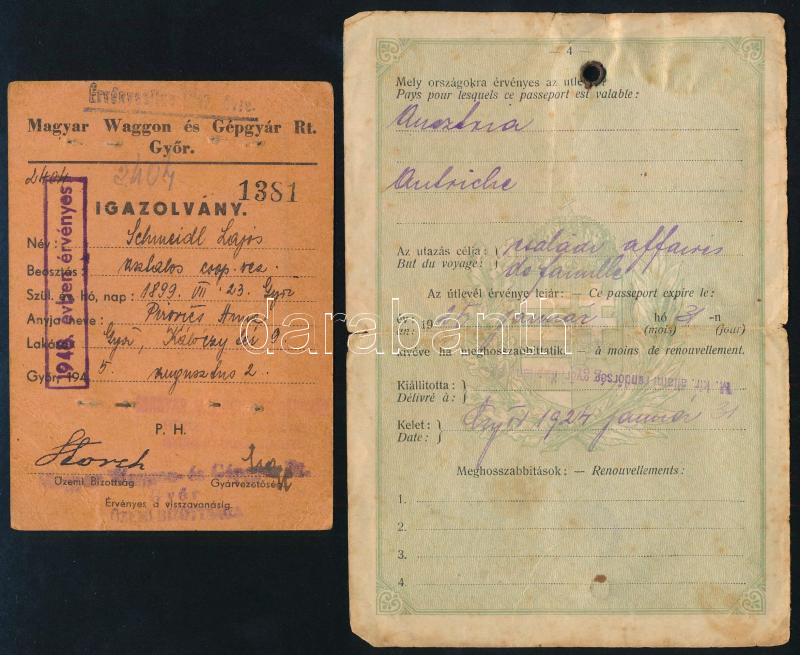 Magyar Waggon és Gépgyár Rt.
Győr.
2404
2404
1381
IGAZOLVÁNY.
1948. évben érvényes
Név: Schmeidl Lajos
Beosztás: asztalos
Szül. év, hó, nap: 1899. VII. 23. Győr
Anyja neve: Anna
Lakás: Győr, 9
Győr, 194 5. augusztus 2.
P. H.
Storch
Üzemi Bizottság
Gyárvezetőség
Érvényes a visszavonásig.
ÜZEMI BIZOTTSÁGA
— 4 —
Mely országokra érvényes az útlevél
Pays pour lesquels ce passeport est valable:
Ausztria
Autriche
Az utazás célja: családi affaires
But du voyage: de famille
Az útlevél érvénye lejár: Ce passeport expire le:
év 1925 január hó 31-n
(an:) (mois) (jour)
kivéve ha meghosszabbíttatik. — à moins de renouvellement.
Kiállította:
Délivré à:
M. kir. állami rendőrség győri kapitánysága
Kelet: Győr 1924 január 31
Date:
Meghosszabbítások: — Renouvellements:
1.
2.
3.
4.
darabanth